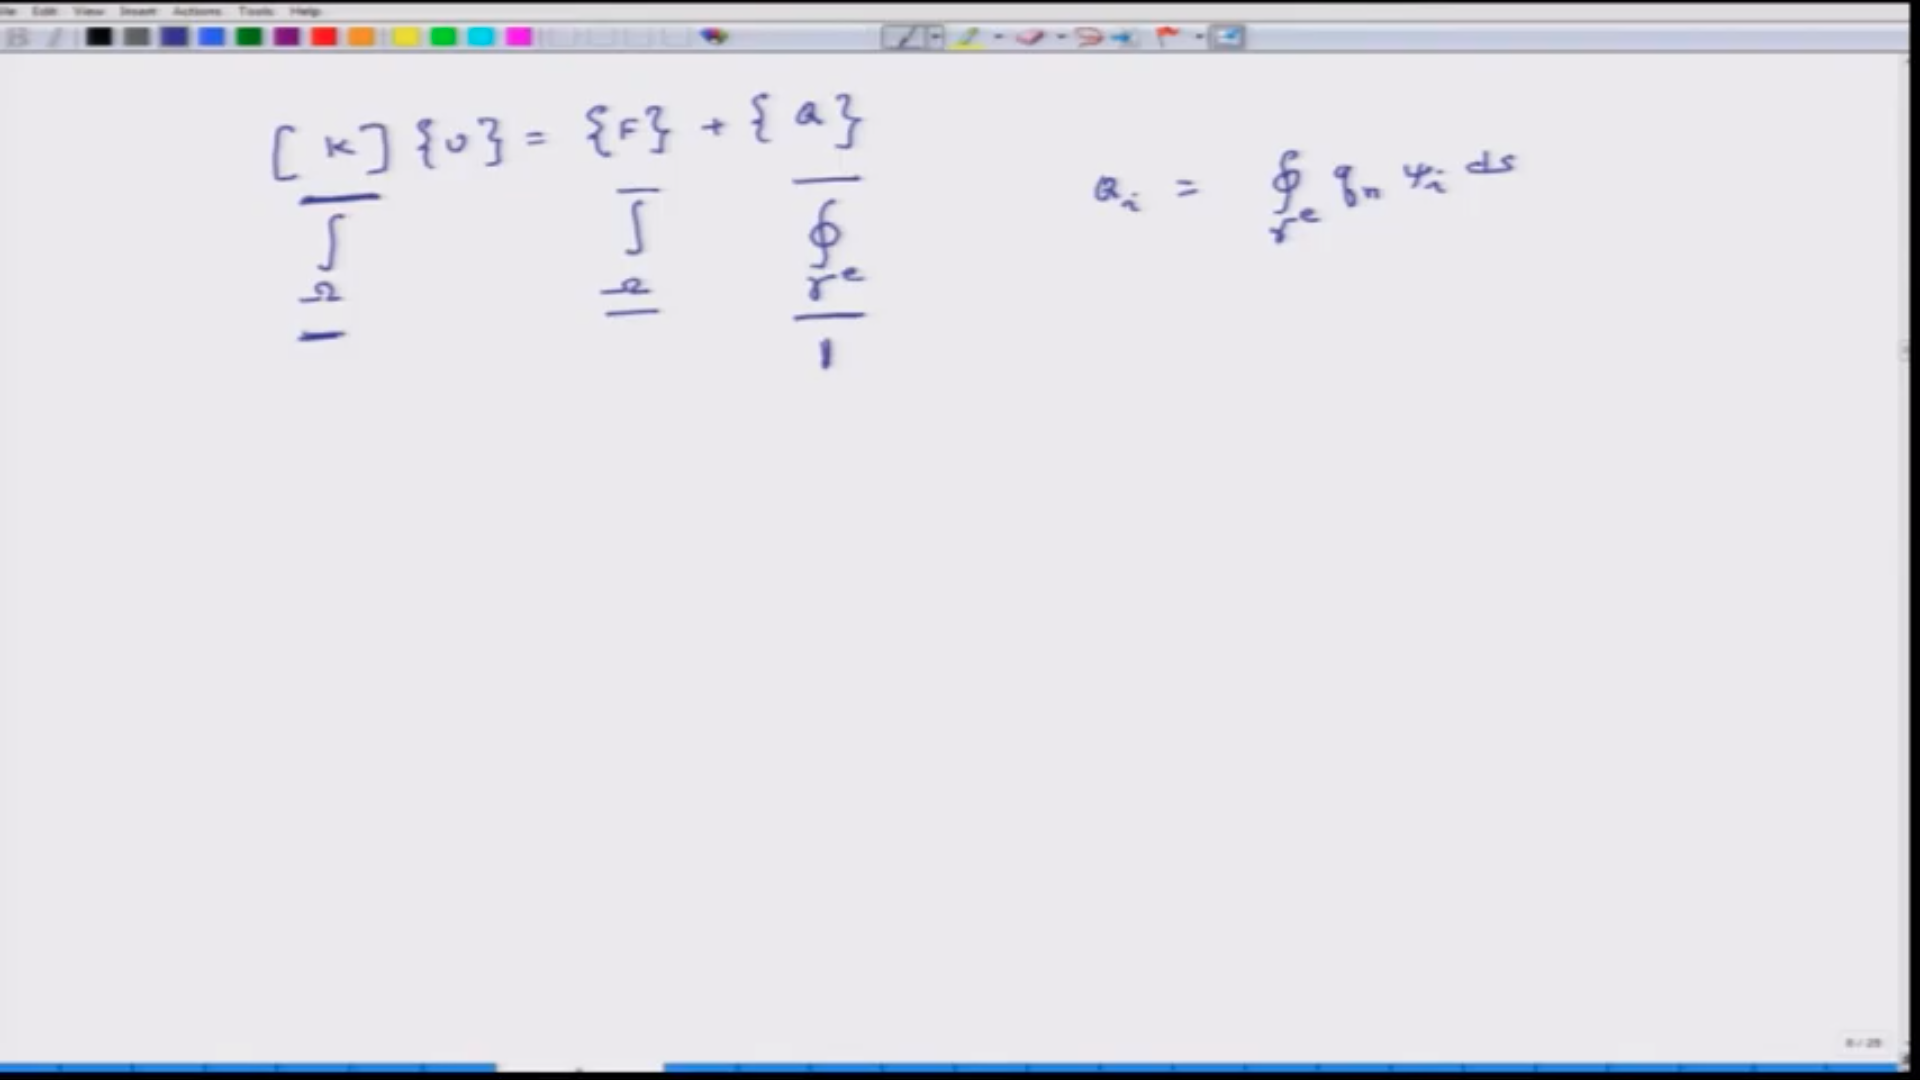 File Edit View Insert Actions Tools Help
[K] {U} = {F} + {Q}
Q_i = ∮_{Γ^e} q_n ψ_i ds
∫_Ω ∫_Ω ∮_{Γ^e}